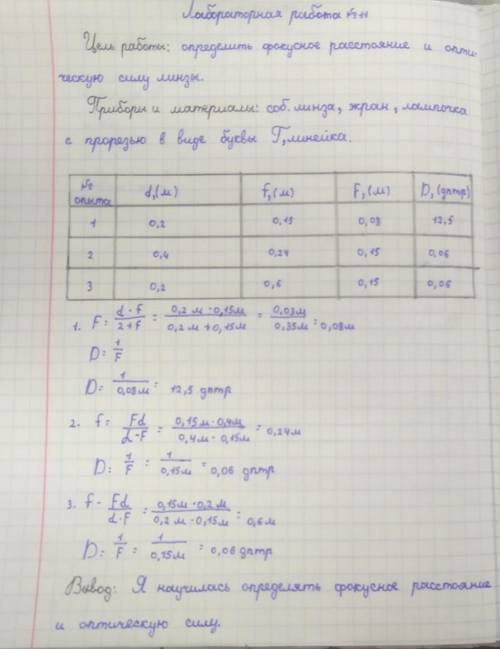 Лабораторная работа №11
Цель работы: определить фокусное расстояние и опти-
ческую силу линзы.
Приборы и материалы: соб. линза, экран, лампочка
с прорезью в виде буквы Г, линейка.
№ опыта d,(м) f,(м) F,(м) D,(дптр)
1 0,2 0,15 0,08 12,5
2 0,4 0,24 0,15 0,06
3 0,2 0,6 0,15 0,06
1. F = d·f / 2+f = 0,2 м · 0,15м / 0,2 м + 0,15м = 0,03м / 0,35м = 0,08м
D = 1/F
D = 1 / 0,08м = 12,5 дптр
2. f = Fd / d-F = 0,15м · 0,4м / 0,4м - 0,15м = 0,24м
D = 1/F = 1 / 0,15м = 0,06 дптр
3. f - Fd / d·F = 0,15м · 0,2 м / 0,2 м - 0,15м = 0,6м
D = 1/F = 1 / 0,15м = 0,06 дптр
Вывод: Я научилась определять фокусное расстояние
и оптическую силу.